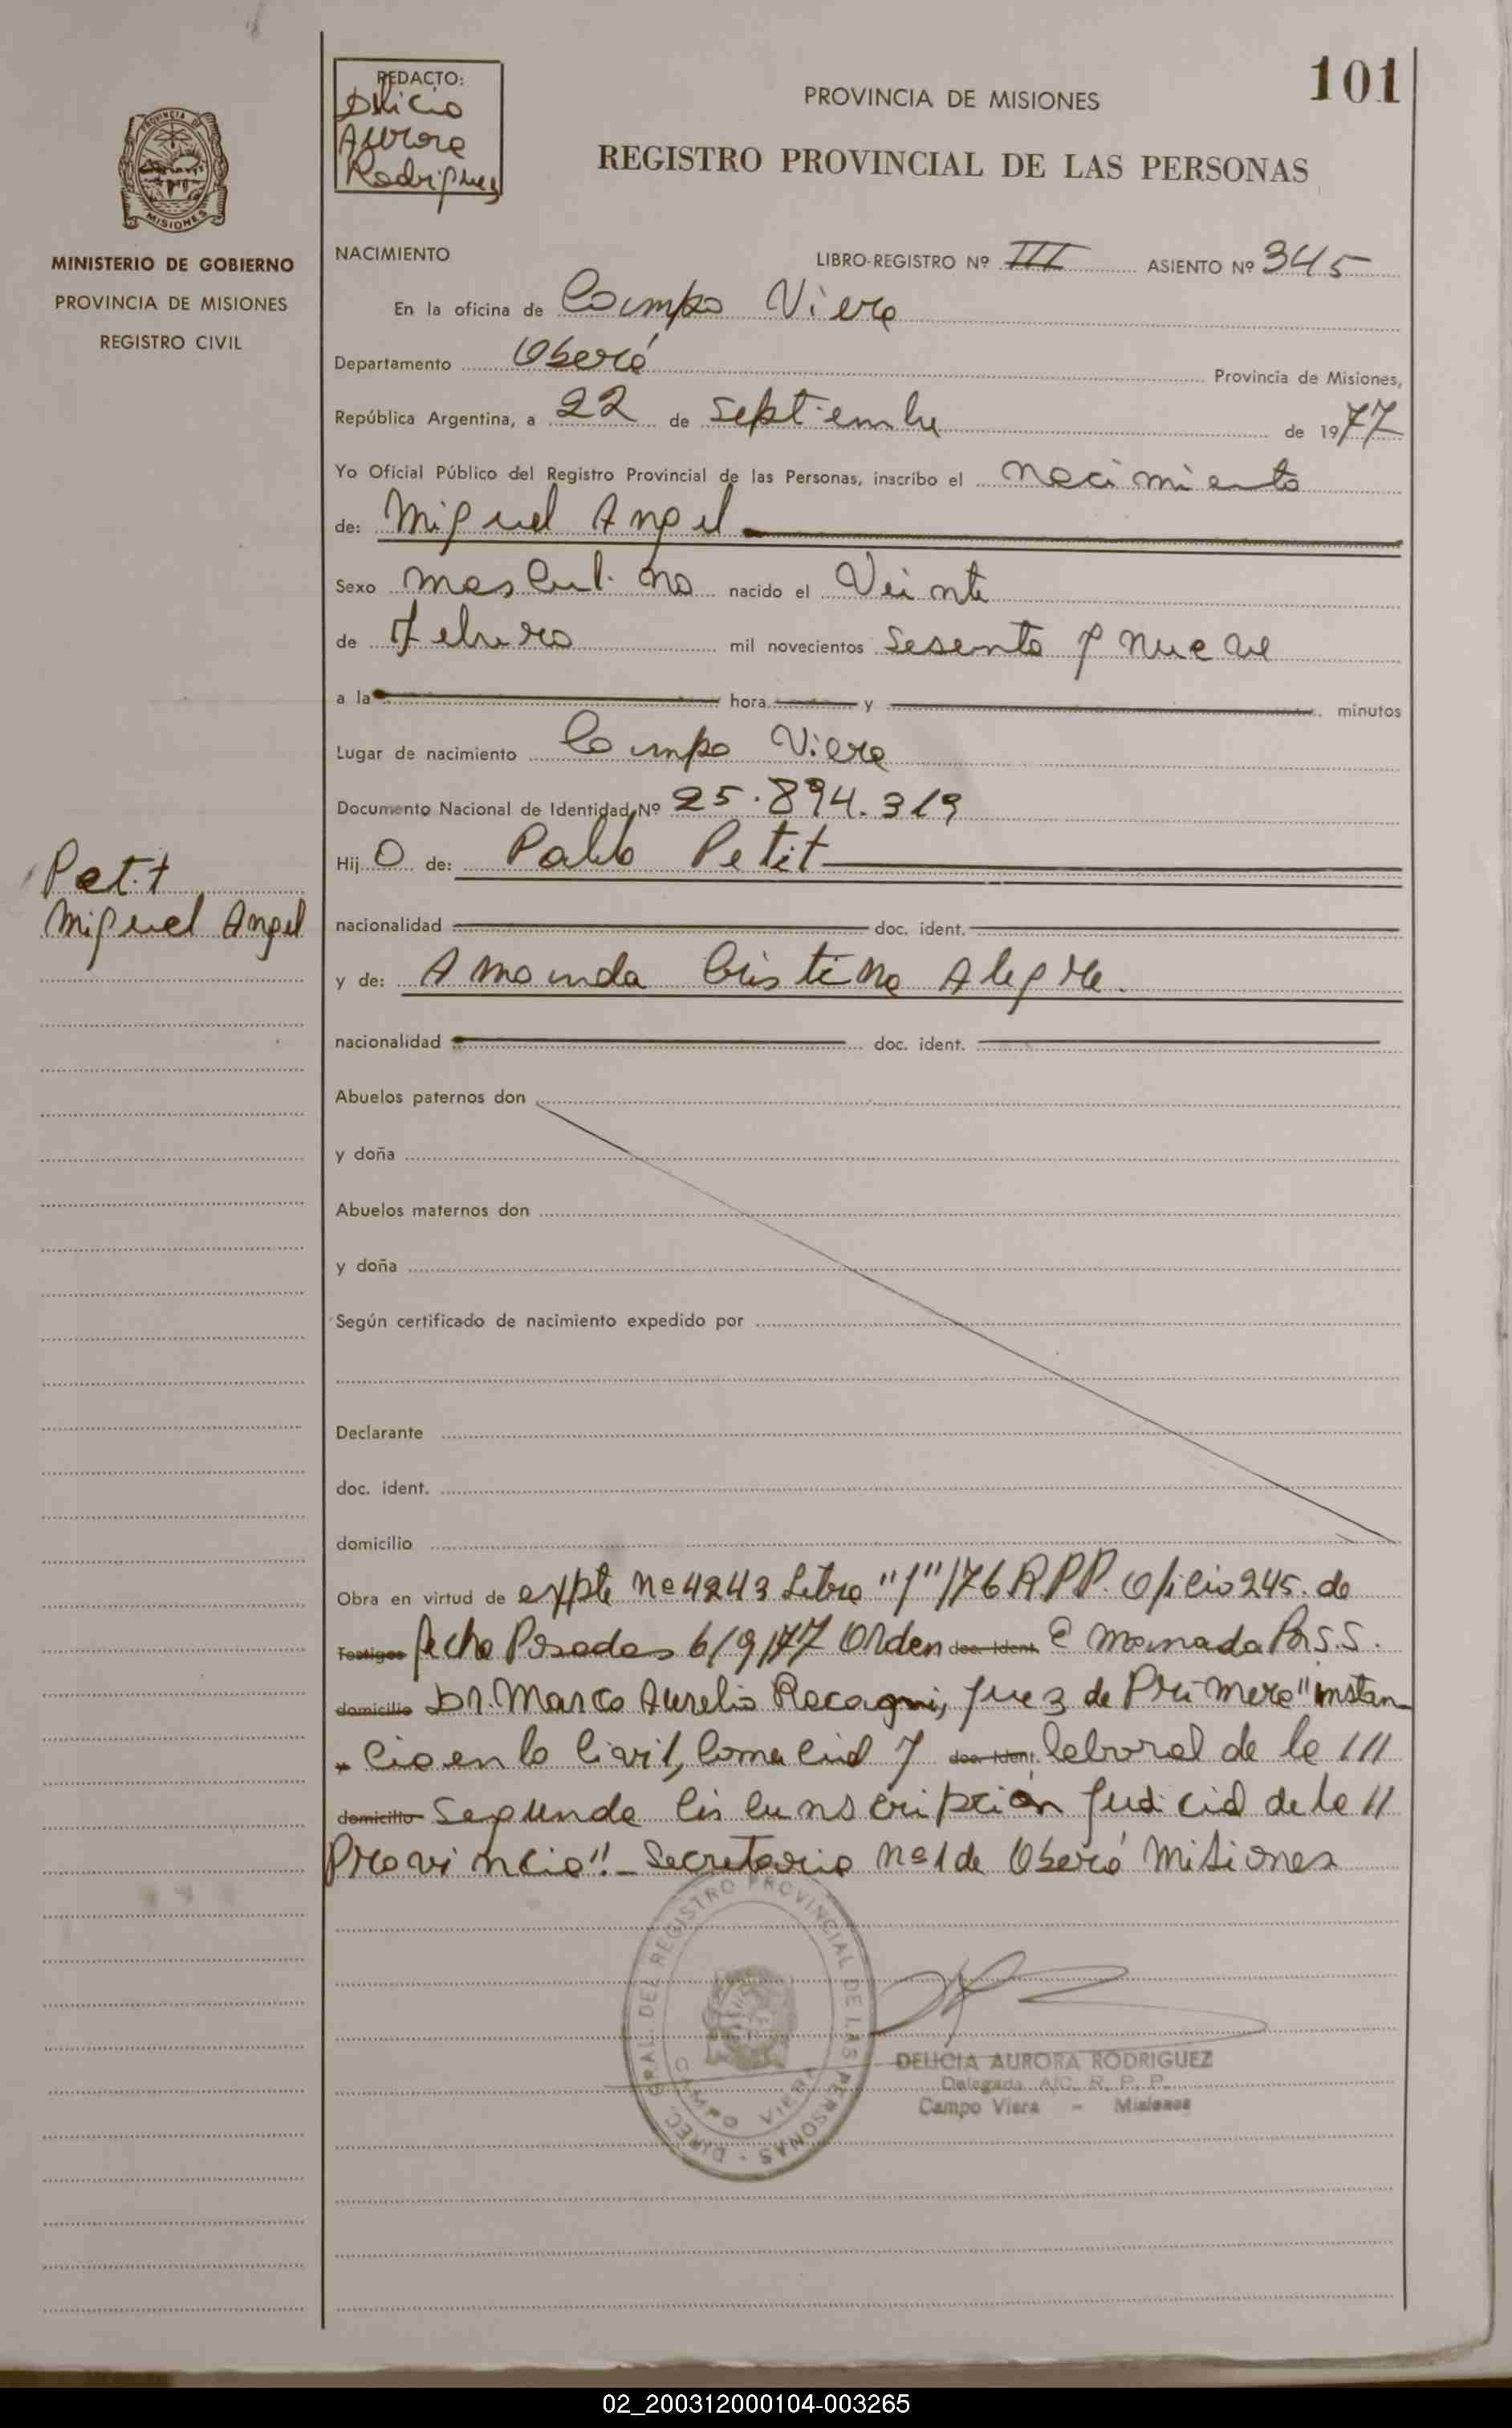 101
REDACTO:
Delicia
Aurora
Rodriguez
PROVINCIA DE MISIONES
REGISTRO PROVINCIAL DE LAS PERSONAS
MISIONES
MINISTERIO DE GOBIERNO
PROVINCIA DE MISIONES
REGISTRO CIVIL
NACIMIENTO LIBRO-REGISTRO Nº III ASIENTO Nº 345
En la oficina de Campo Viera
Departamento Oberá Provincia de Misiones,
República Argentina, a 22 de Septiembre de 1977
Yo Oficial Público del Registro Provincial de las Personas, inscribo el nacimiento
de: Miguel Angel
Sexo masculino nacido el Veinte
de Febrero mil novecientos Sesenta y nueve
a la hora y minutos
Lugar de nacimiento Campo Viera
Documento Nacional de Identidad Nº 25.894.319
Hij O de: Pablo Petit
Petit
Miguel Angel
nacionalidad doc. ident.
y de: Amanda Cristina Alegre.
nacionalidad doc. ident.
Abuelos paternos don
y doña
Abuelos maternos don
y doña
Según certificado de nacimiento expedido por
Declarante
doc. ident.
domicilio
Obra en virtud de expte nº 4243 Libro "1"/76 R.P.P. Oficio 245. de
Testigos fecha Posadas 6/9/77 Orden doc. ident. Emanada Por S.S.
domicilio Dr. Marco Aurelio Racagni, Juez de Primera "instan
cia en lo Civil, Comercial y doc. ident. laboral de la ///
domicilio Segunda Circunscripción Judicial de la //
Provincia".- Secretaria nº 1 de Oberá Misiones
DIREC. GRAL. DEL REGISTRO PROVINCIAL DE LAS PERSONAS
CAMPO VIERA
DELICIA AURORA RODRIGUEZ
Delegada A/C. R. P. P.
Campo Viera - Misiones
02_200312000104-003265